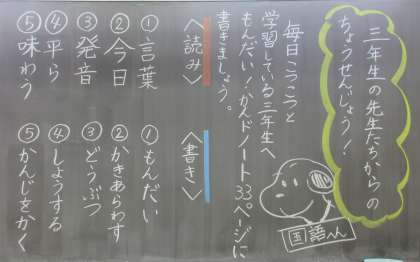 三年生の先生たちからの
ちょうせんじょう！
毎日こつこつと
学習している三年生へ
もんだい！かんドノート33ページに
書きましょう。
国語へん
〈読み〉
①言葉
②今日
③発音
④平ら
⑤味わう
〈書き〉
①もんだい
②かきあらわす
③どうぶつ
④しようする
⑤かんじをかく